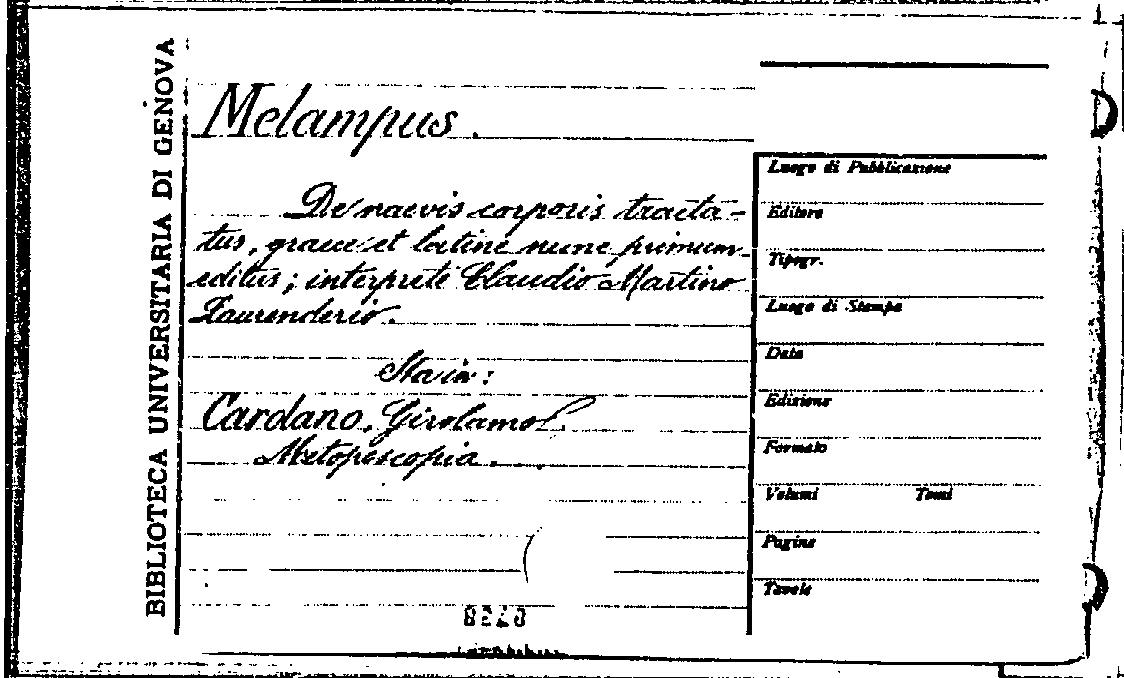 BIBLIOTECA UNIVERSITARIA DI GENOVA
Melampus.
De naevis corporis tracta-
tus, graece et latine nunc primum
editus; interprete Claudio Martino
Laurenderio.
Sta in:
Cardano, Girolamo
Metoposcopia.
Luogo di Pubblicazione
Editore
Tipogr.
Luogo di Stampa
Data
Edizione
Formato
Volumi Tomi
Pagine
Tavole